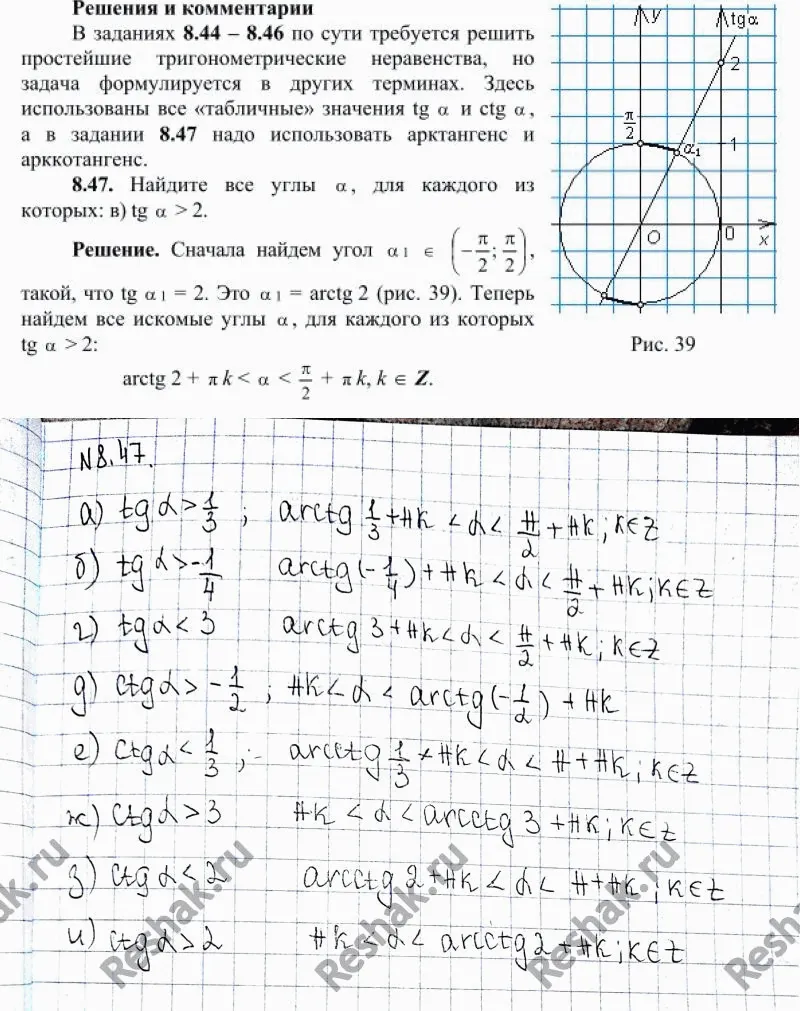 Решения и комментарии
В заданиях 8.44 – 8.46 по сути требуется решить
простейшие тригонометрические неравенства, но
задача формулируется в других терминах. Здесь
использованы все «табличные» значения tg α и ctg α,
а в задании 8.47 надо использовать арктангенс и
арккотангенс.
8.47. Найдите все углы α, для каждого из
которых: в) tg α > 2.
Решение. Сначала найдем угол α₁ ∈ (−π/2; π/2),
такой, что tg α₁ = 2. Это α₁ = arctg 2 (рис. 39). Теперь
найдем все искомые углы α, для каждого из которых
tg α > 2:
arctg 2 + πk < α < π/2 + πk, k ∈ Z.
y tg α
2
π/2
α₁ 1
O 0 x
Рис. 39
N 8.47.
а) tg α > 1/3 ; arctg 1/3 + πk < α < π/2 + πk; k∈Z
б) tg α > -1/4 arctg(-1/4) + πk < α < π/2 + πk; k∈Z
г) tg α < 3 arctg 3 + πk < α < π/2 + πk; k∈Z
д) ctg α > -1/2 ; πk < α < arctg(-1/2) + πk
е) ctg α < 1/3 ; arcctg 1/3 + πk < α < π + πk; k∈Z
ж) ctg α > 3 πk < α < arcctg 3 + πk; k∈Z
з) ctg α < 2 arcctg 2 + πk < α < π + πk; k∈Z
и) ctg α > 2 πk < α < arcctg 2 + πk; k∈Z
Reshak.ru
Reshak.ru
Reshak.ru
Reshak.ru